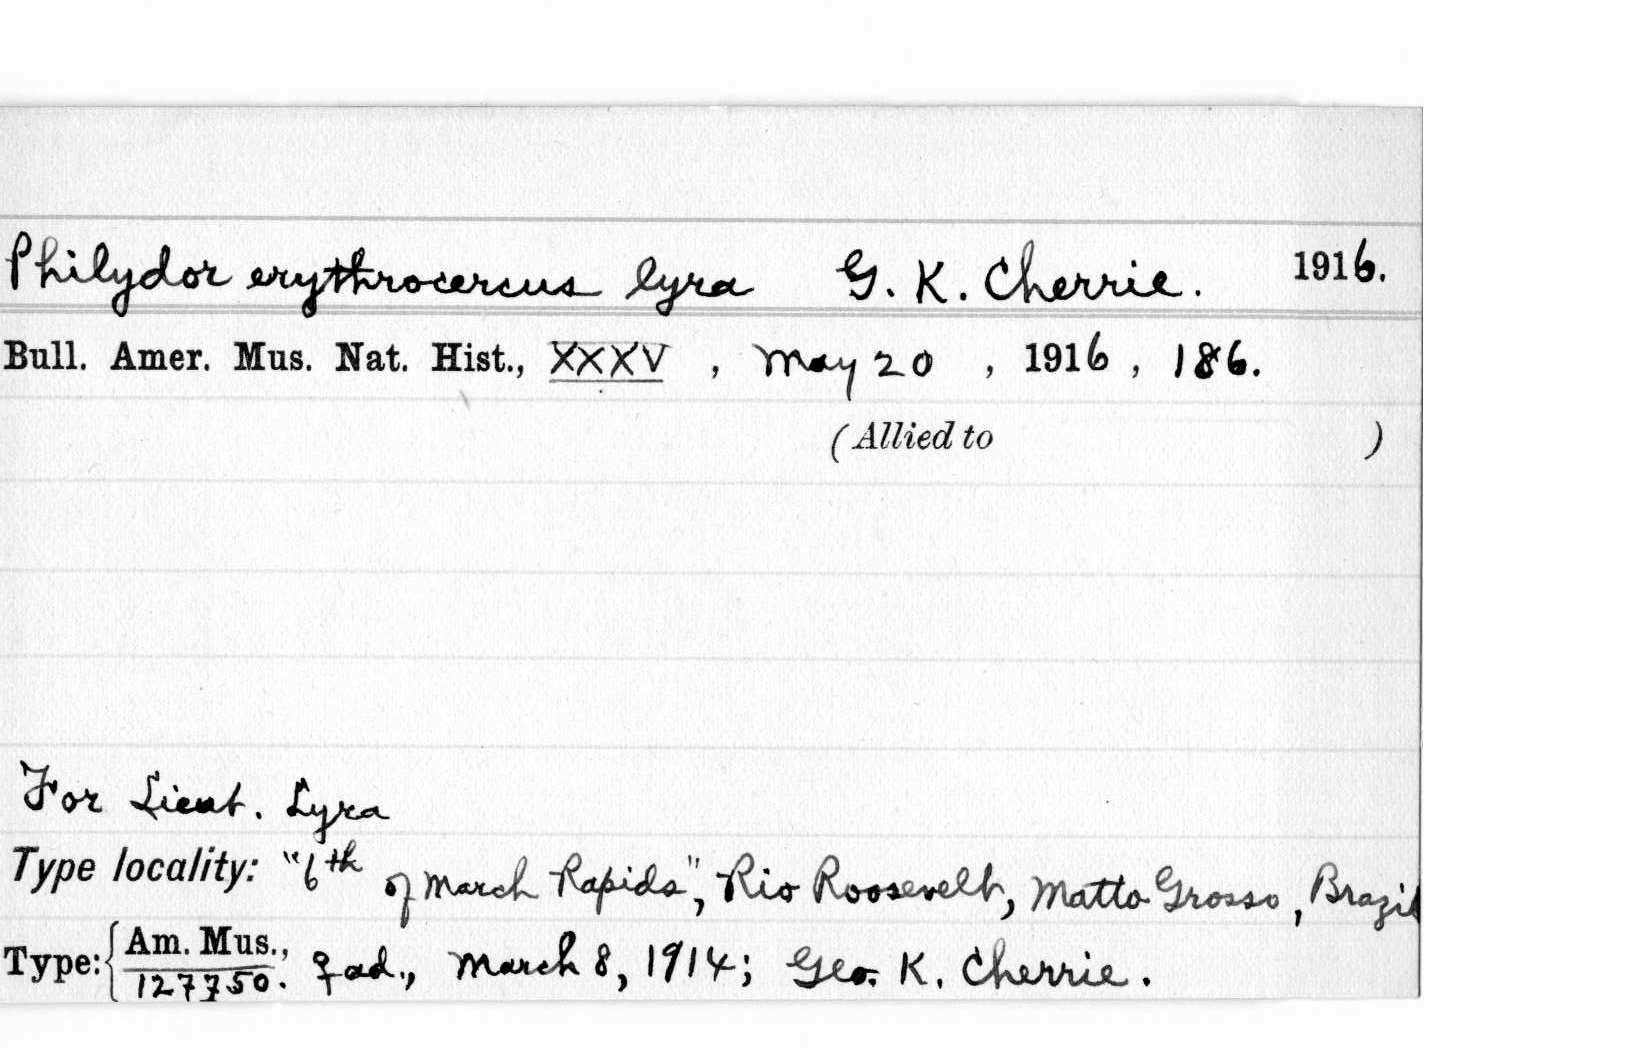 Philydor erythrocercus lyra G. K. Cherrie. 1916.
Bull. Amer. Mus. Nat. Hist., XXXV, May 20, 1916, 186.
(Allied to )
For Lieut. Lyra
Type locality: "6th of March Rapids", Rio Roosevelt, Matto Grosso, Brazil
Type: { Am. Mus., 127750. ♀ ad., March 8, 1914; Geo. K. Cherrie.